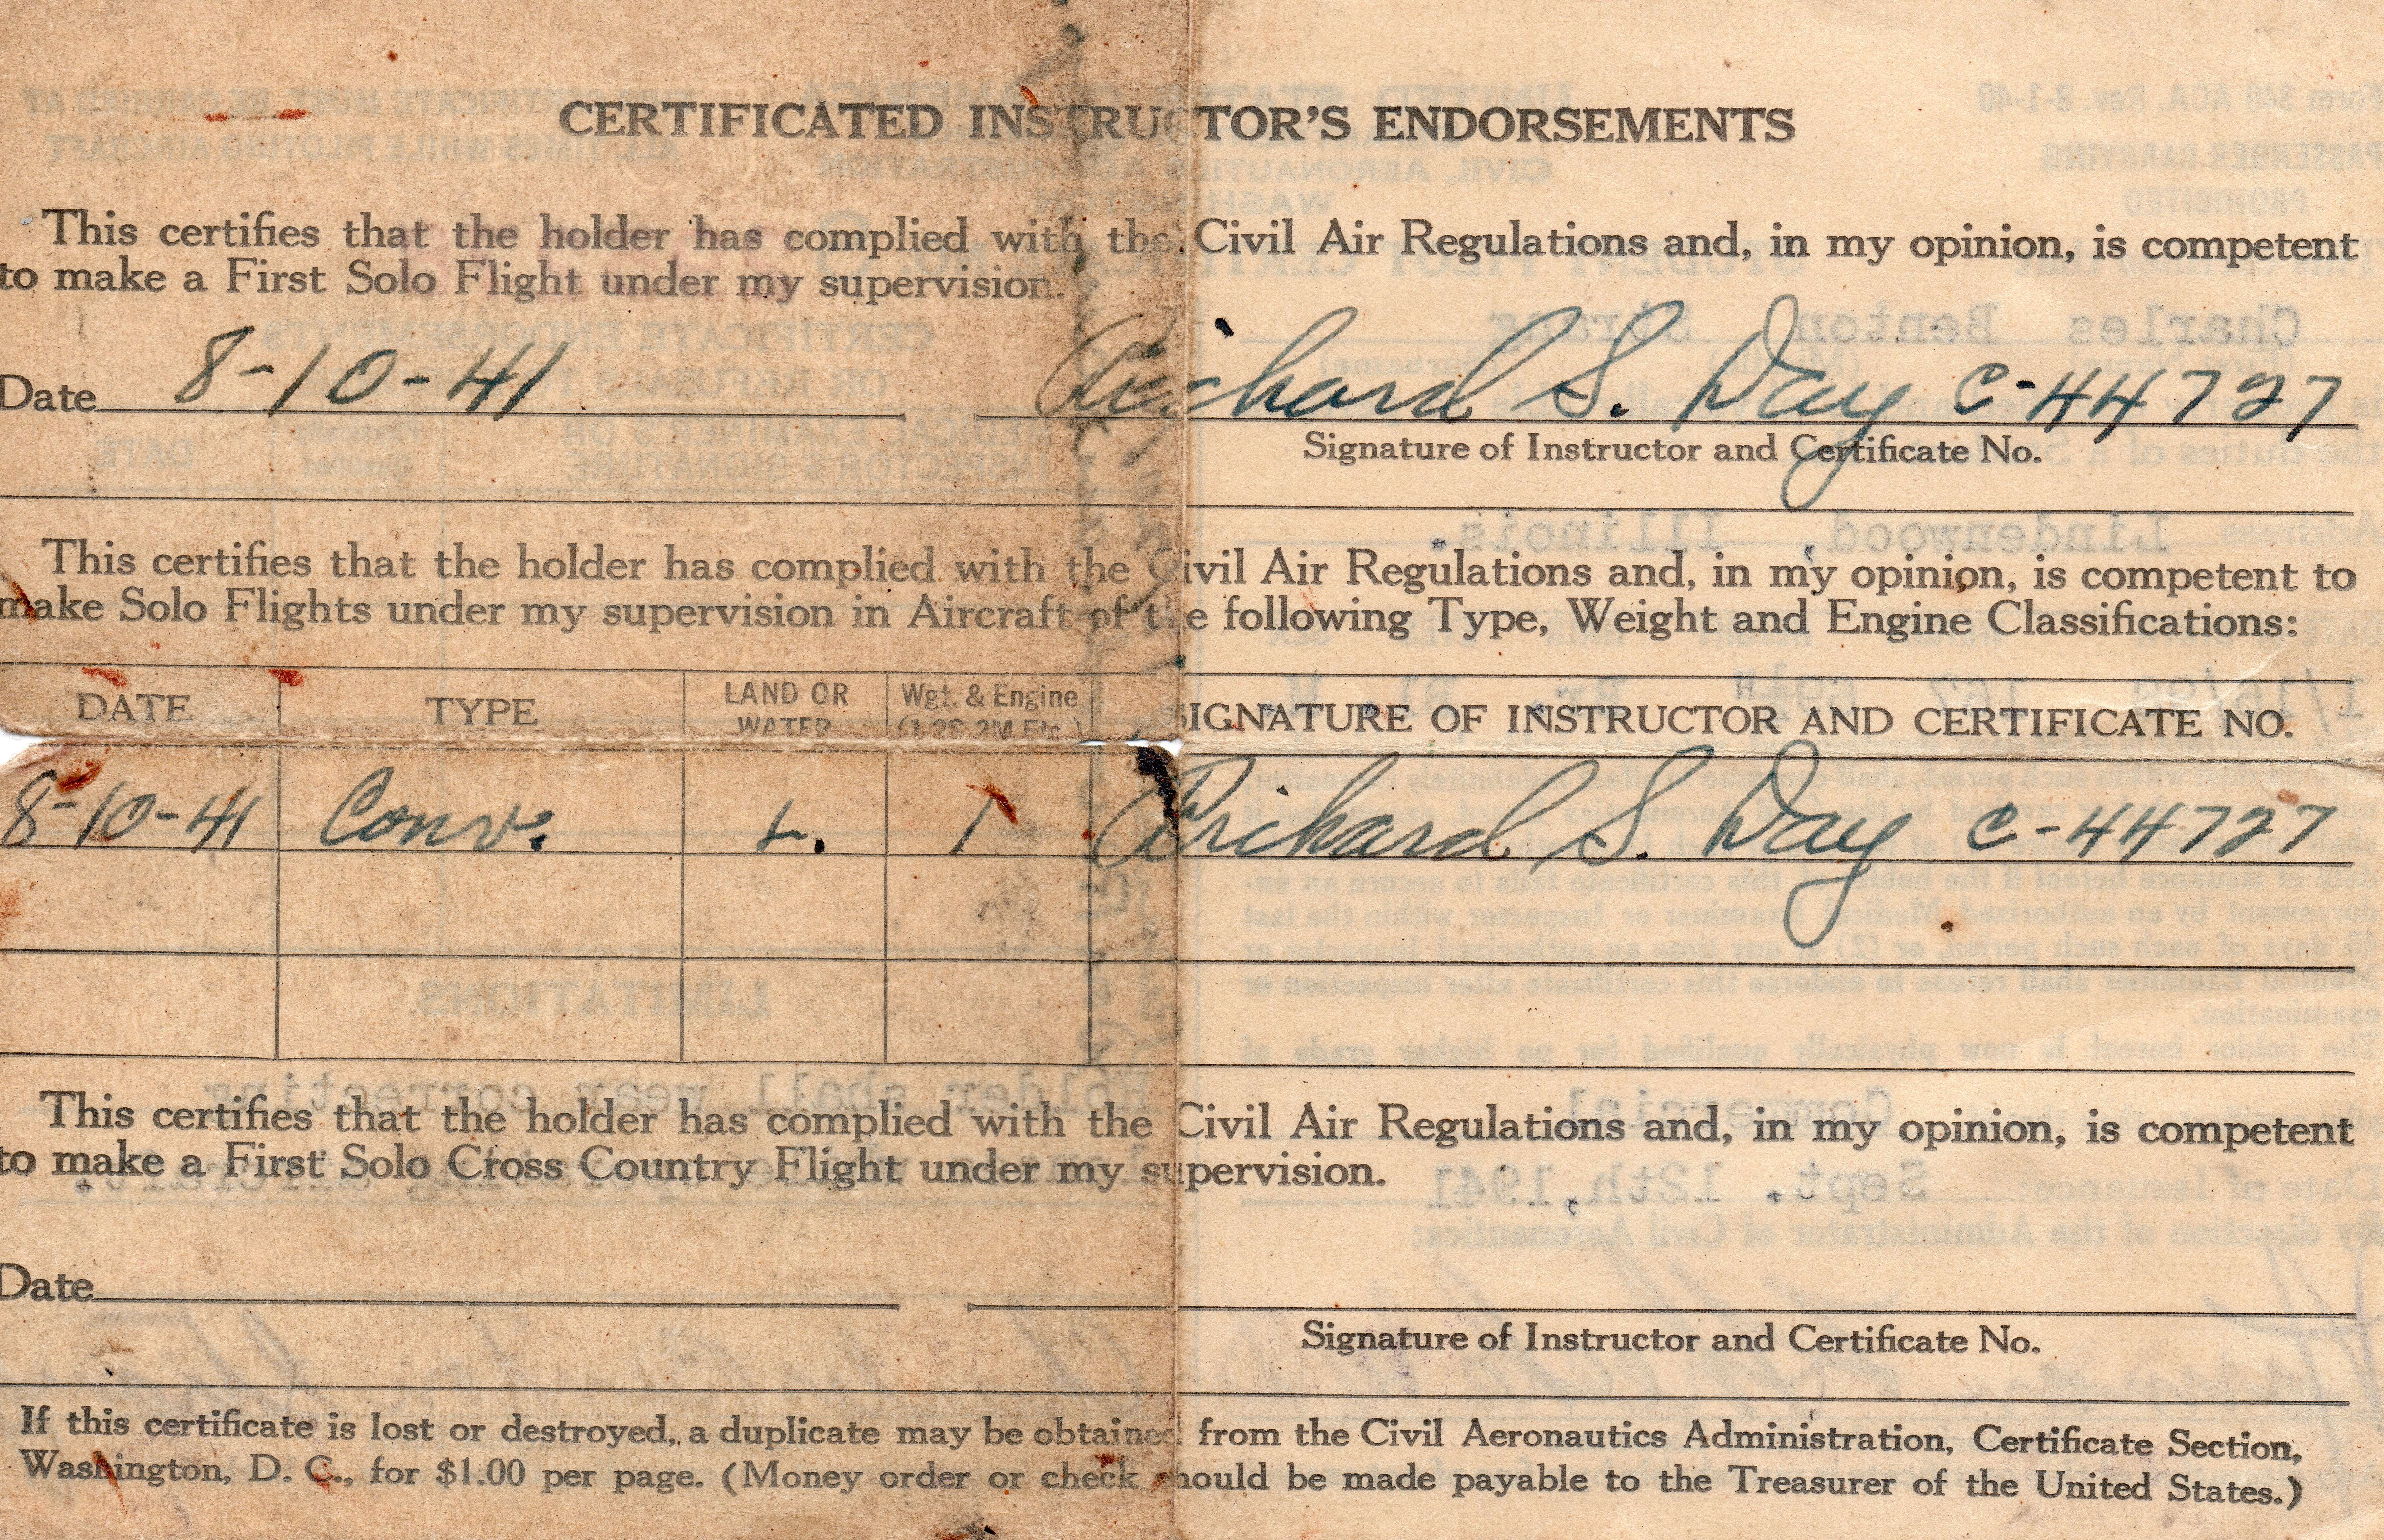 CERTIFICATED INSTRUCTOR'S ENDORSEMENTS
This certifies that the holder has complied with the Civil Air Regulations and, in my opinion, is competent
to make a First Solo Flight under my supervision.
Date 8-10-41 Richard S. Day C-44727
Signature of Instructor and Certificate No.
This certifies that the holder has complied with the Civil Air Regulations and, in my opinion, is competent to
make Solo Flights under my supervision in Aircraft of the following Type, Weight and Engine Classifications:
DATE TYPE LAND OR WATER Wgt. & Engine (1, 2S, 2M Etc.) SIGNATURE OF INSTRUCTOR AND CERTIFICATE NO.
8-10-41 Conv. L. 1 Richard S. Day C-44727
This certifies that the holder has complied with the Civil Air Regulations and, in my opinion, is competent
to make a First Solo Cross Country Flight under my supervision.
Date
Signature of Instructor and Certificate No.
If this certificate is lost or destroyed, a duplicate may be obtained from the Civil Aeronautics Administration, Certificate Section,
Washington, D. C., for $1.00 per page. (Money order or check should be made payable to the Treasurer of the United States.)